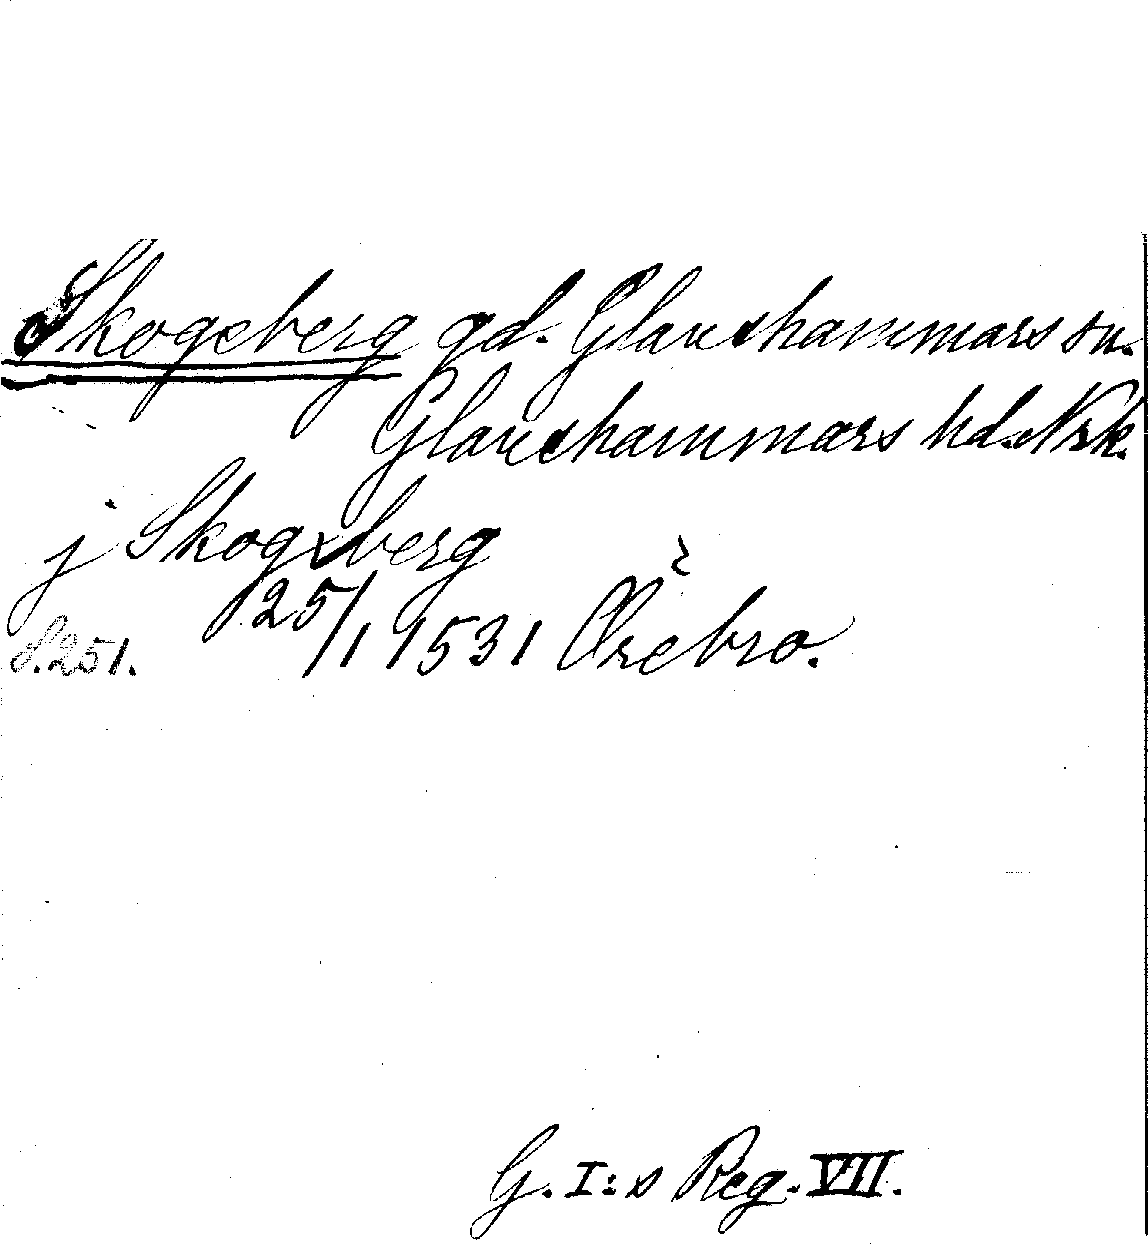 Skogsberg gd. Glanshammars sn.
Glanshammars hd. Nrk.
j Skogxberg
25/1 1531 Örebro.
S. 251.
G. I:s Reg. VII.